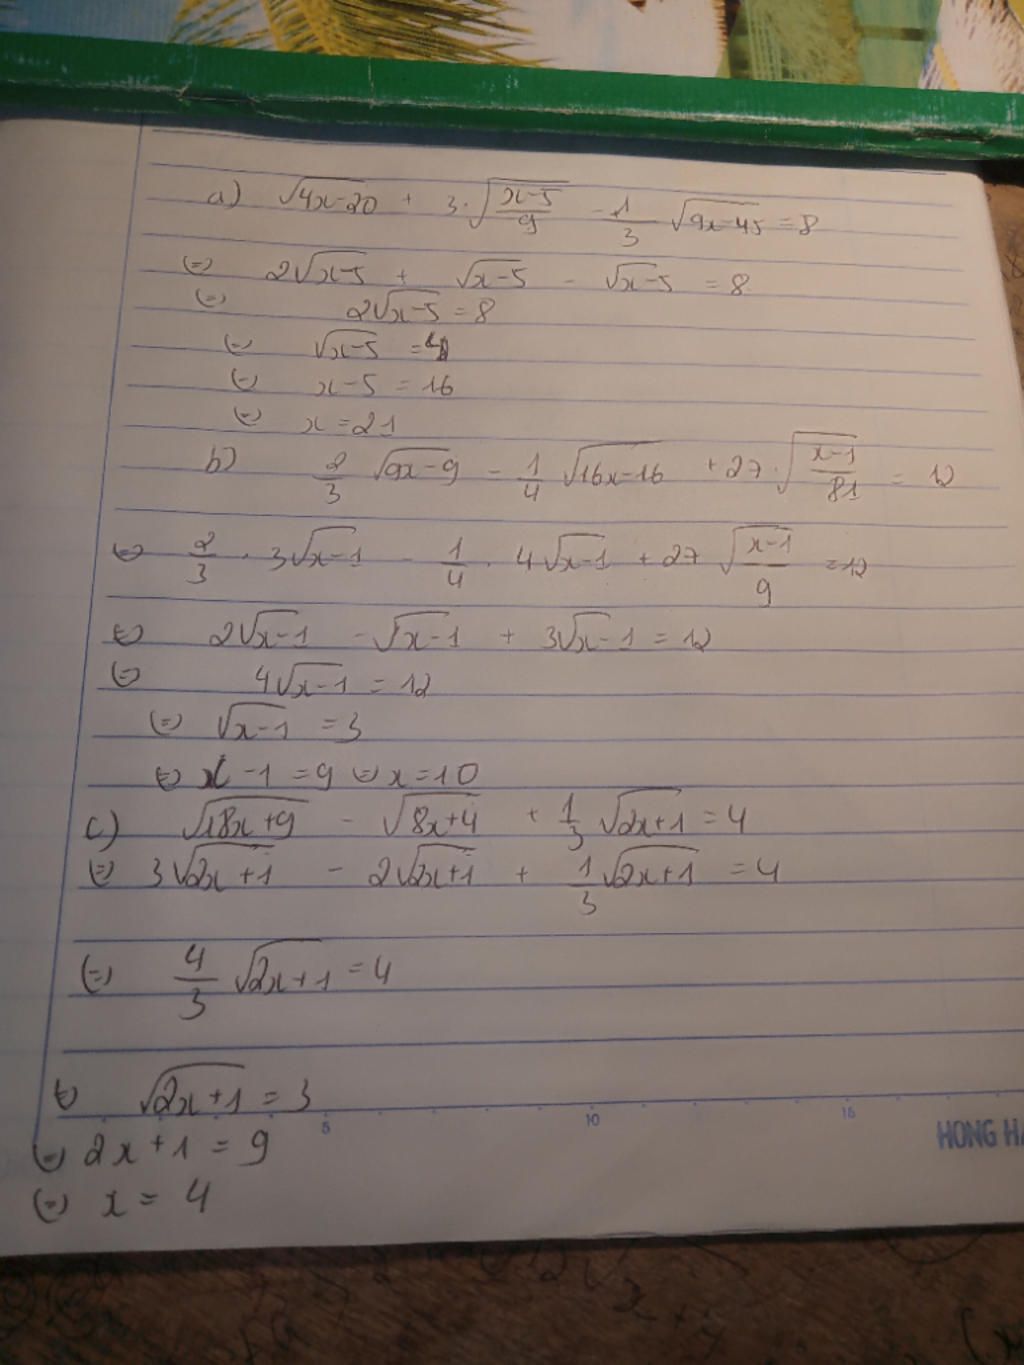 a) √(4x-20) + 3·√((x-5)/9) - 1/3 √(9x-45) = 8
(=) 2√(x-5) + √(x-5) - √(x-5) = 8
(=) 2√(x-5) = 8
(=) √(x-5) = 4
(=) x-5 = 16
(=) x = 21
b) 2/3 √(9x-9) - 1/4 √(16x-16) + 27·√((x-1)/81) = 12
(=) 2/3 · 3√(x-1) - 1/4 · 4√(x-1) + 27 √(x-1)/9 = 12
(=) 2√(x-1) - √(x-1) + 3√(x-1) = 12
(=) 4√(x-1) = 12
(=) √(x-1) = 3
(=) x-1 = 9 (=) x = 10
c) √(18x+9) - √(8x+4) + 1/3 √(2x+1) = 4
(=) 3√(2x+1) - 2√(2x+1) + 1/3 √(2x+1) = 4
(=) 4/3 √(2x+1) = 4
(=) √(2x+1) = 3
5 10 15
HONG HA
(=) 2x+1 = 9
(=) x = 4